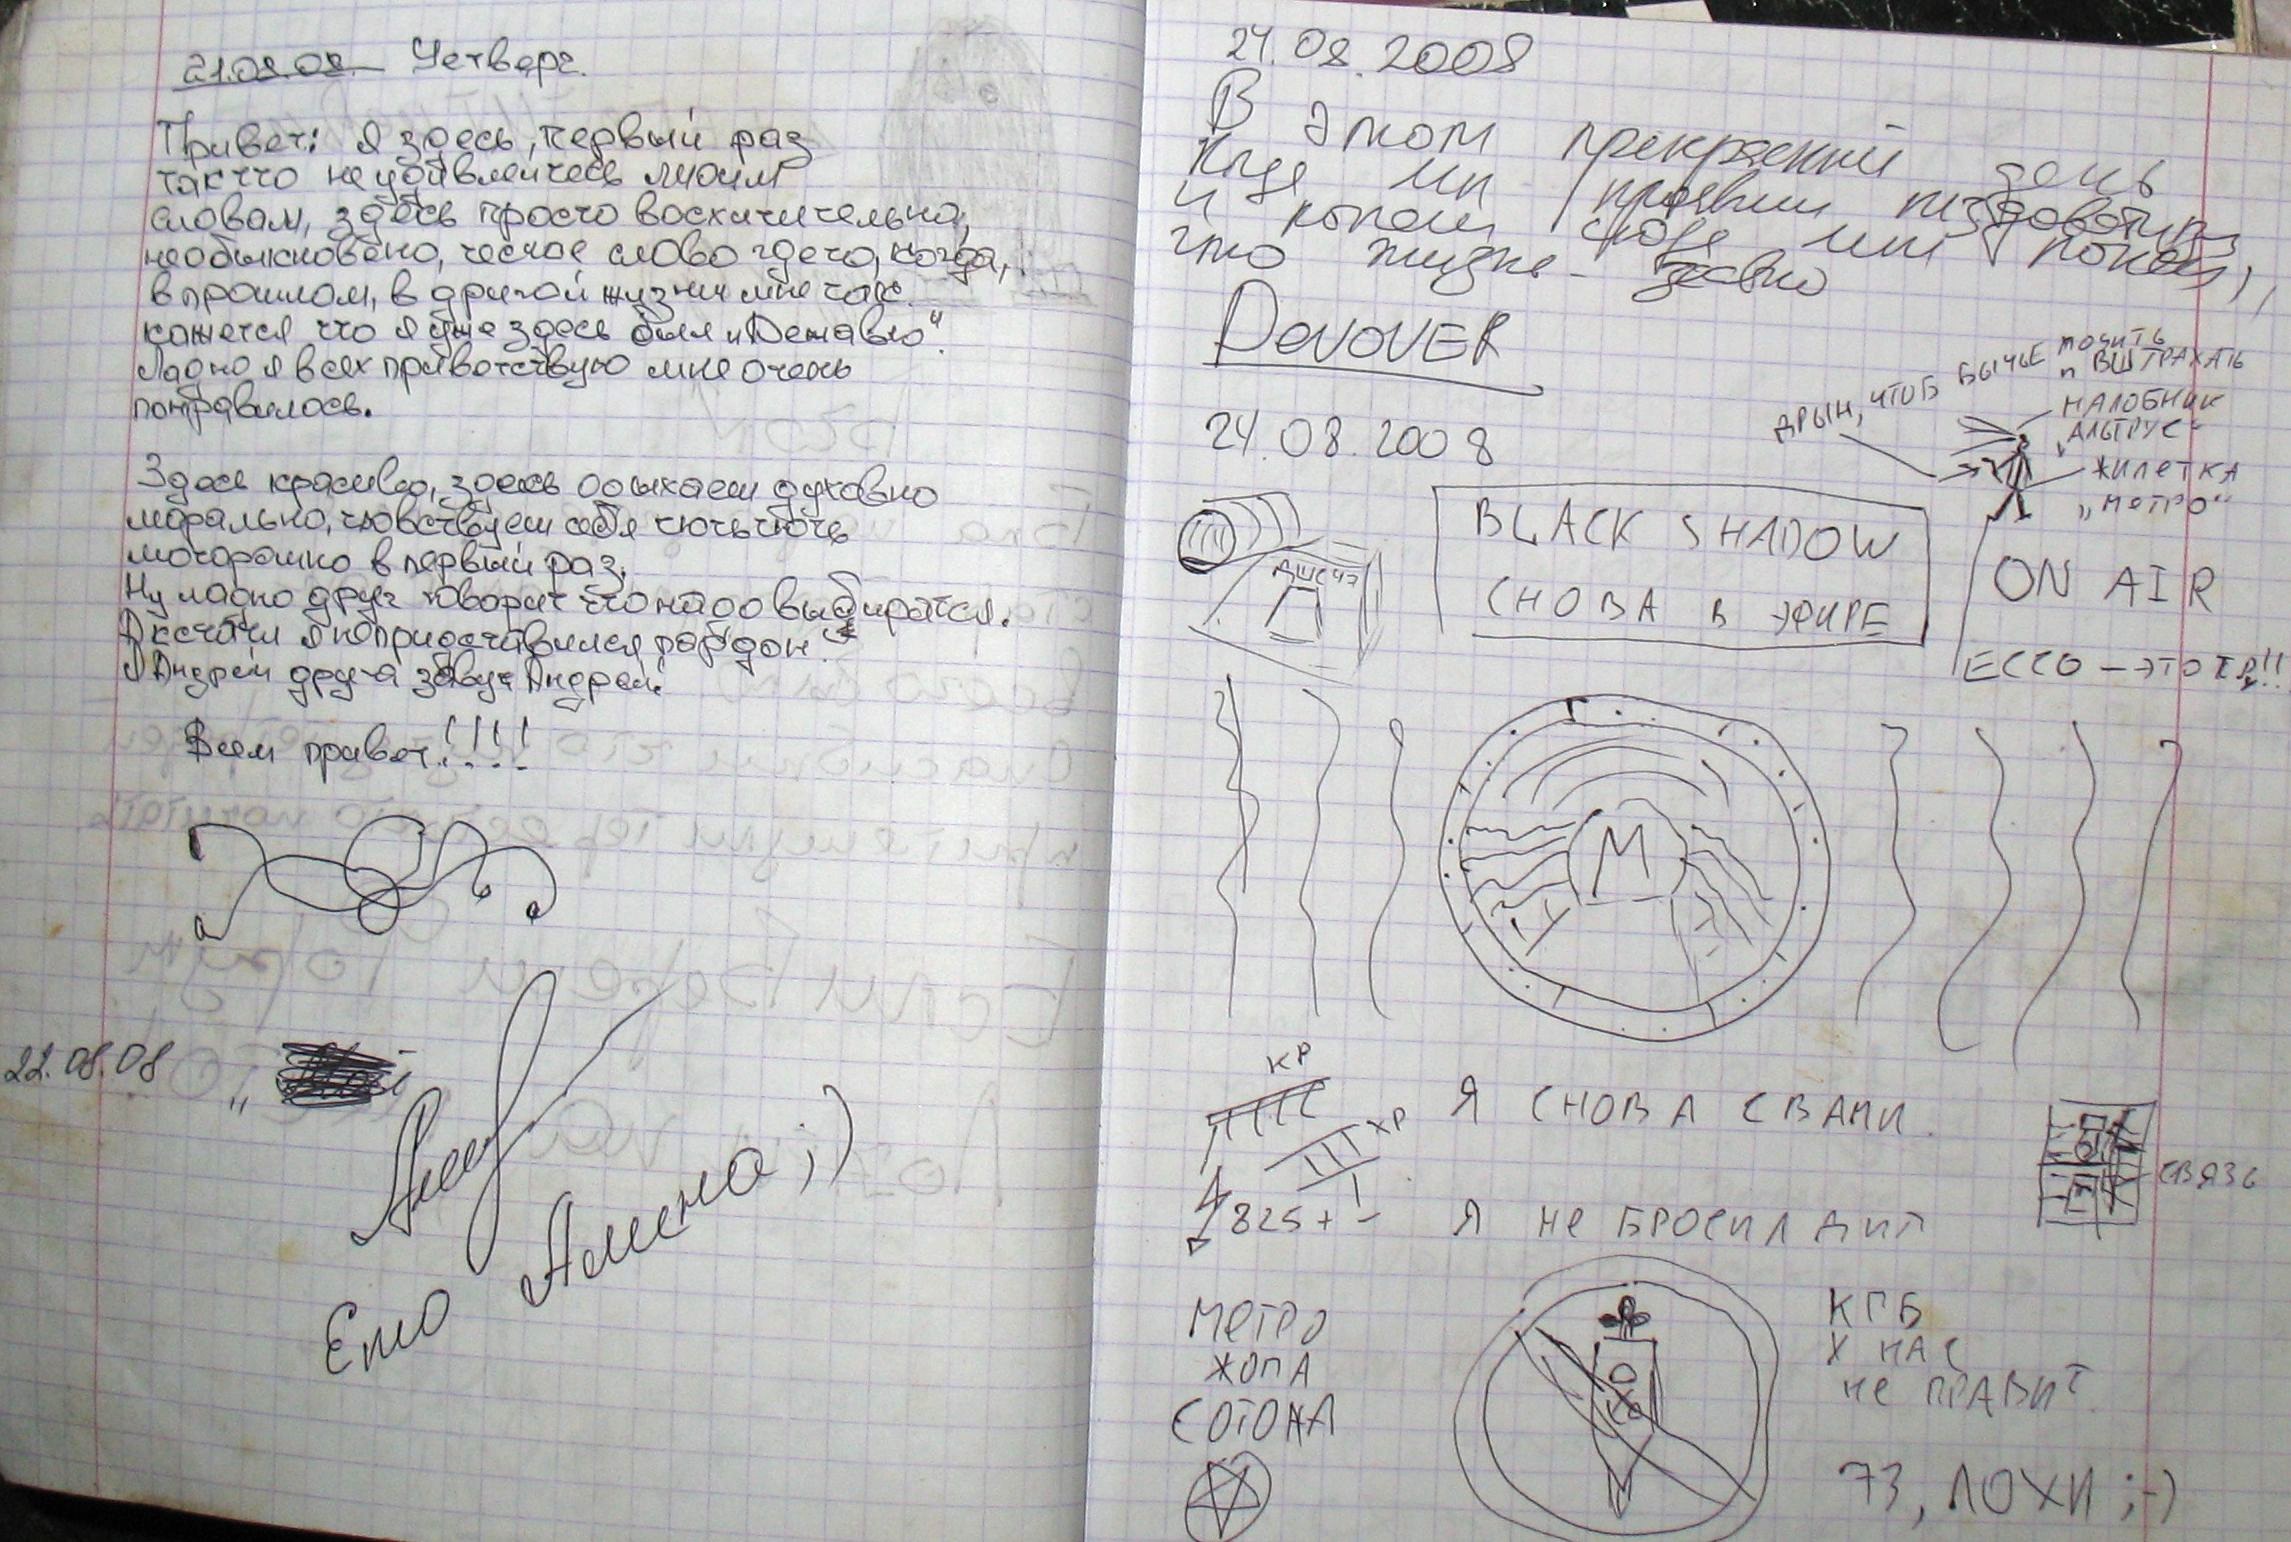 21.08.08. Четверг.
Привет: Я здесь, первый раз
так что не удивлейтесь моим
словам, здесь просто восхитительно,
необыкновено, чесное слово где то, когда,
в прошлом, в другой жизни мне так
кажется что я уже здесь был „Дежавю".
Ладно я всех приветствую мне очень
понравилось.
Здесь красиво, здесь одыхаеш духовно
морально, чювствуеш себя чючьчючь
моторошно в первый раз.
Ну ладно друг говорит что надо выбиратся.
А кстати я не приставился пардон
Я Андрей друга завут Андрей.
Всем привет!!!!
22.08.08
Ето Алена ;)
24.08.2008
В этом прекрасний день
и копаем
что жизнь
DEVOVER
24.08.2008
ДРЫН, ЧТОБ БЫЧЬЕ МОЧИТЬ
НАЛОБНИК
„АЛЬТРУС"
ЖИЛЕТКА
„МЕТРО"
BLACK SHADOW
СНОВА В ЭФИРЕ
ON AIR
ЕССО — ЭТО
М
КР
ХР
Я СНОВА С ВАМИ.
СВЯЗЬ
825 + -
Я НЕ БРОСИЛ ДИГ
МЕТРО
ЖОПА
СОТОНА
КГБ
У НАС
НЕ ПРАВИТ.
73, ЛОХИ ;-)